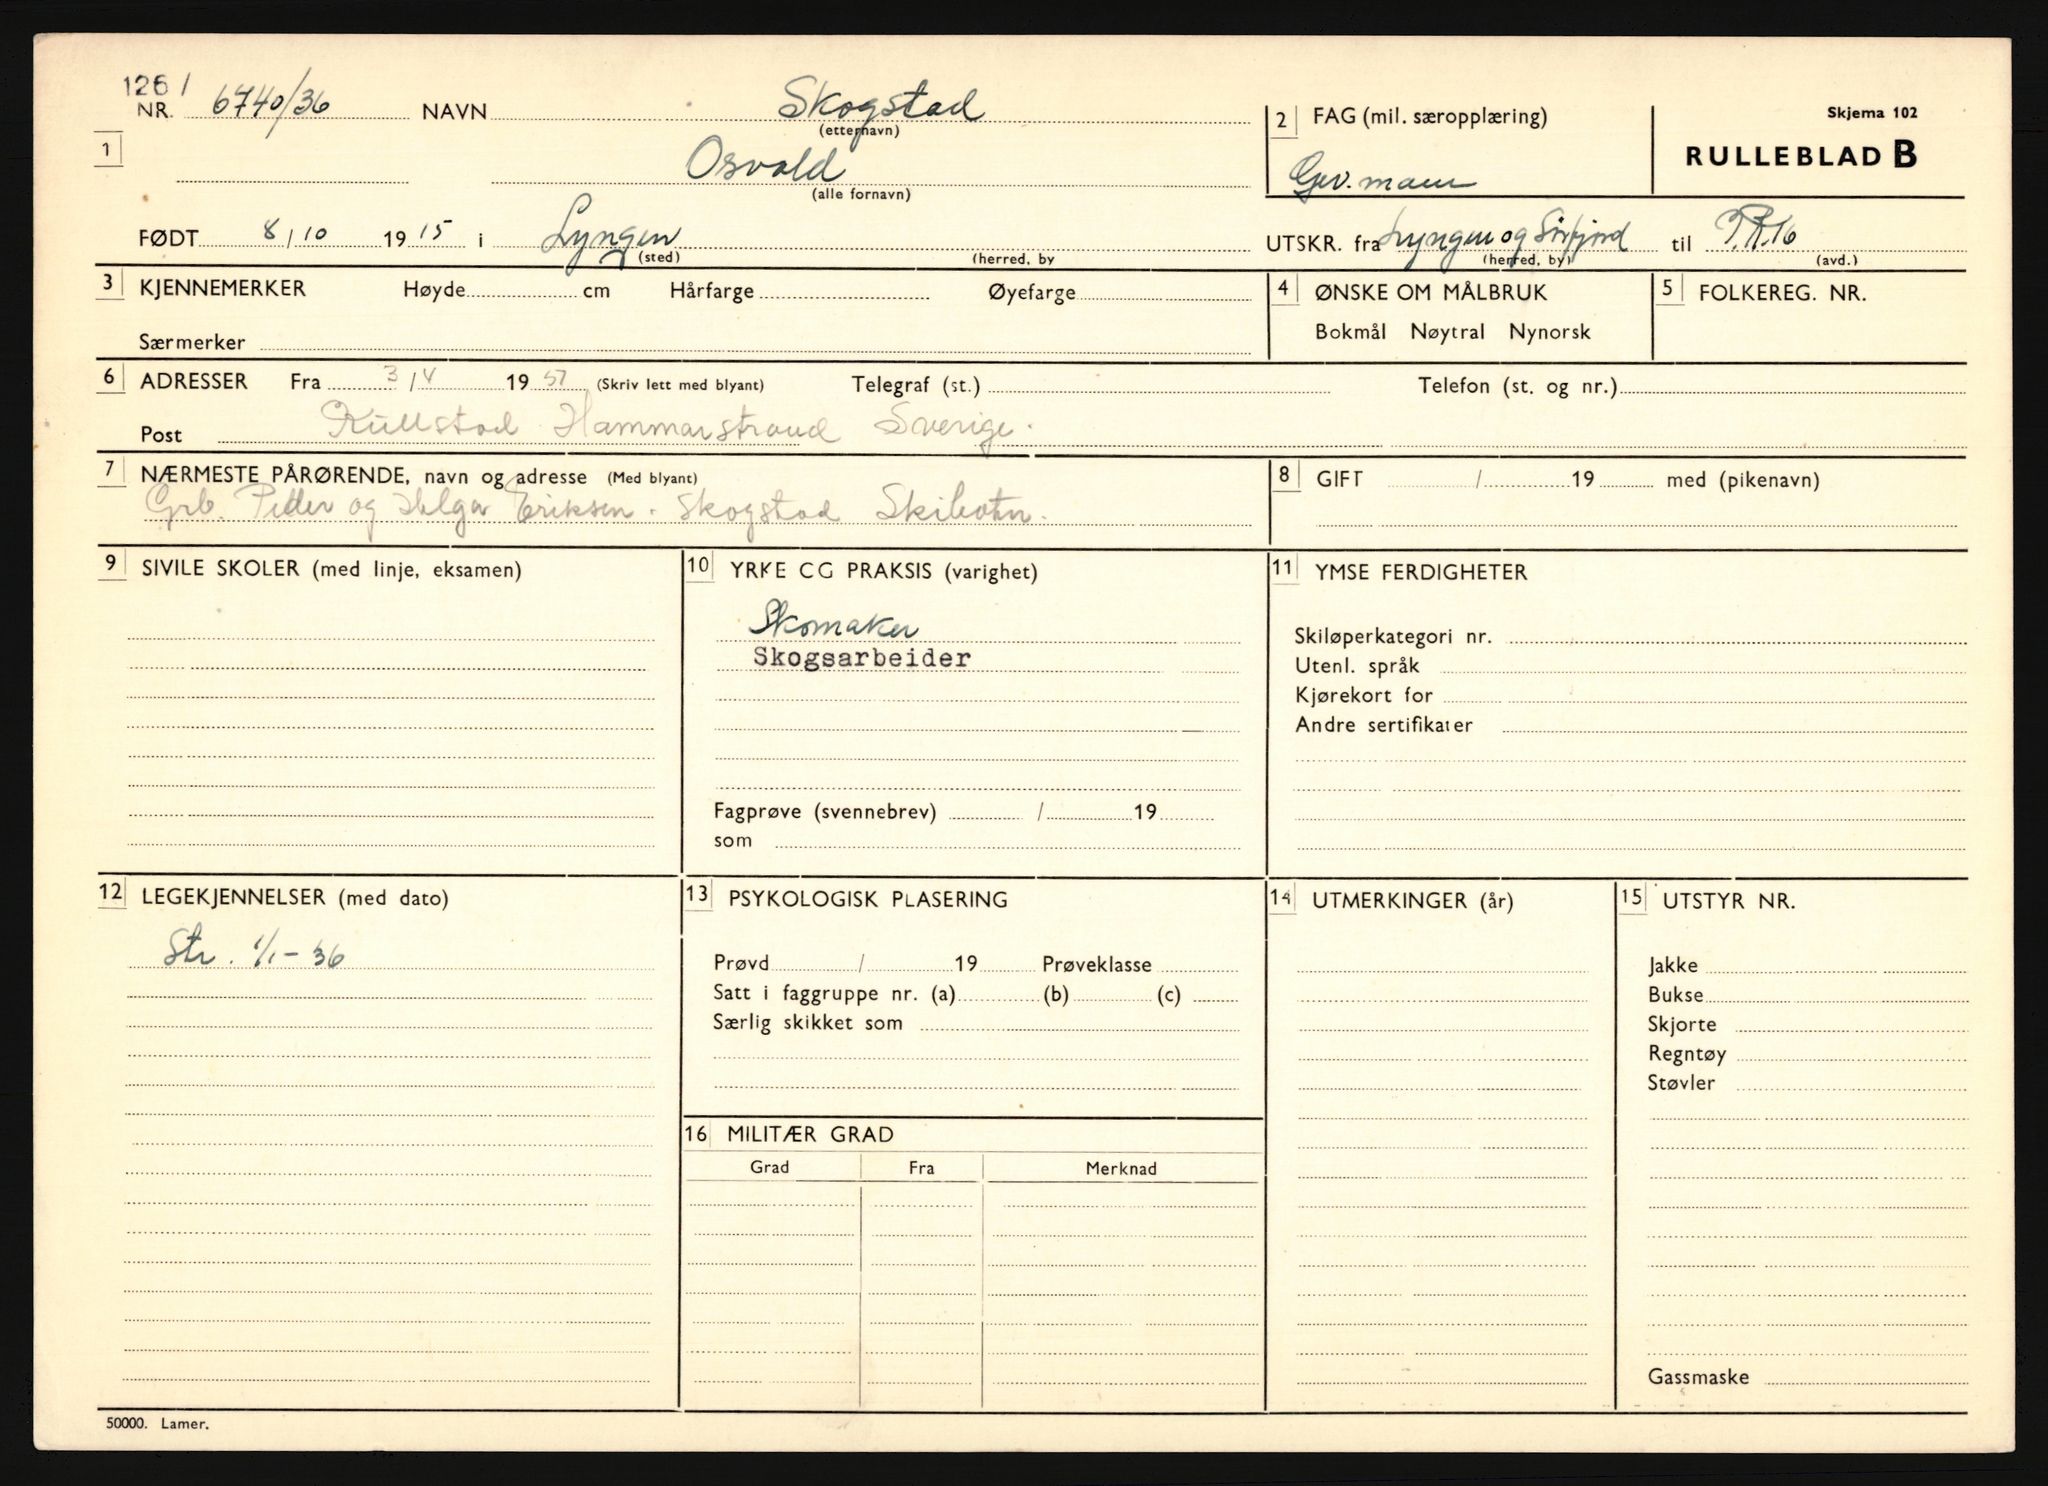 126 /
NR. 6740/36 NAVN Skogstad
(etternavn)
2 FAG (mil. særopplæring)
Skjema 102
RULLEBLAD B
1
Osvald
(alle fornavn)
Gev. mann
FØDT 8/10 1915 i Lyngen
(sted) (herred, by
UTSKR. fra Lyngen og Sørfjord til I.R.16
(herred, by) (avd.)
3 KJENNEMERKER Høyde cm Hårfarge Øyefarge
Særmerker
4 ØNSKE OM MÅLBRUK
Bokmål Nøytral Nynorsk
5 FOLKEREG. NR.
6 ADRESSER Fra 3/4 1957 (Skriv lett med blyant) Telegraf (st.) Telefon (st. og nr.)
Post Kullstad Hammarstrand Sverige.
7 NÆRMESTE PÅRØRENDE, navn og adresse (Med blyant)
Grb. Peder og Helga Eriksen. Skogstad Skibotn.
8 GIFT / 19 med (pikenavn)
9 SIVILE SKOLER (med linje, eksamen)
10 YRKE CG PRAKSIS (varighet)
Skomaker
Skogsarbeider
Fagprøve (svennebrev) / 19
som
11 YMSE FERDIGHETER
Skiløperkategori nr.
Utenl. språk
Kjørekort for
Andre sertifikater
12 LEGEKJENNELSER (med dato)
Str. 1/1-36
13 PSYKOLOGISK PLASERING
Prøvd / 19 Prøveklasse
Satt i faggruppe nr. (a) (b) (c)
Særlig skikket som
14 UTMERKINGER (år)
15 UTSTYR NR.
Jakke
Bukse
Skjorte
Regntøy
Støvler
Gassmaske
16 MILITÆR GRAD
Grad Fra Merknad
50000. Lamer.